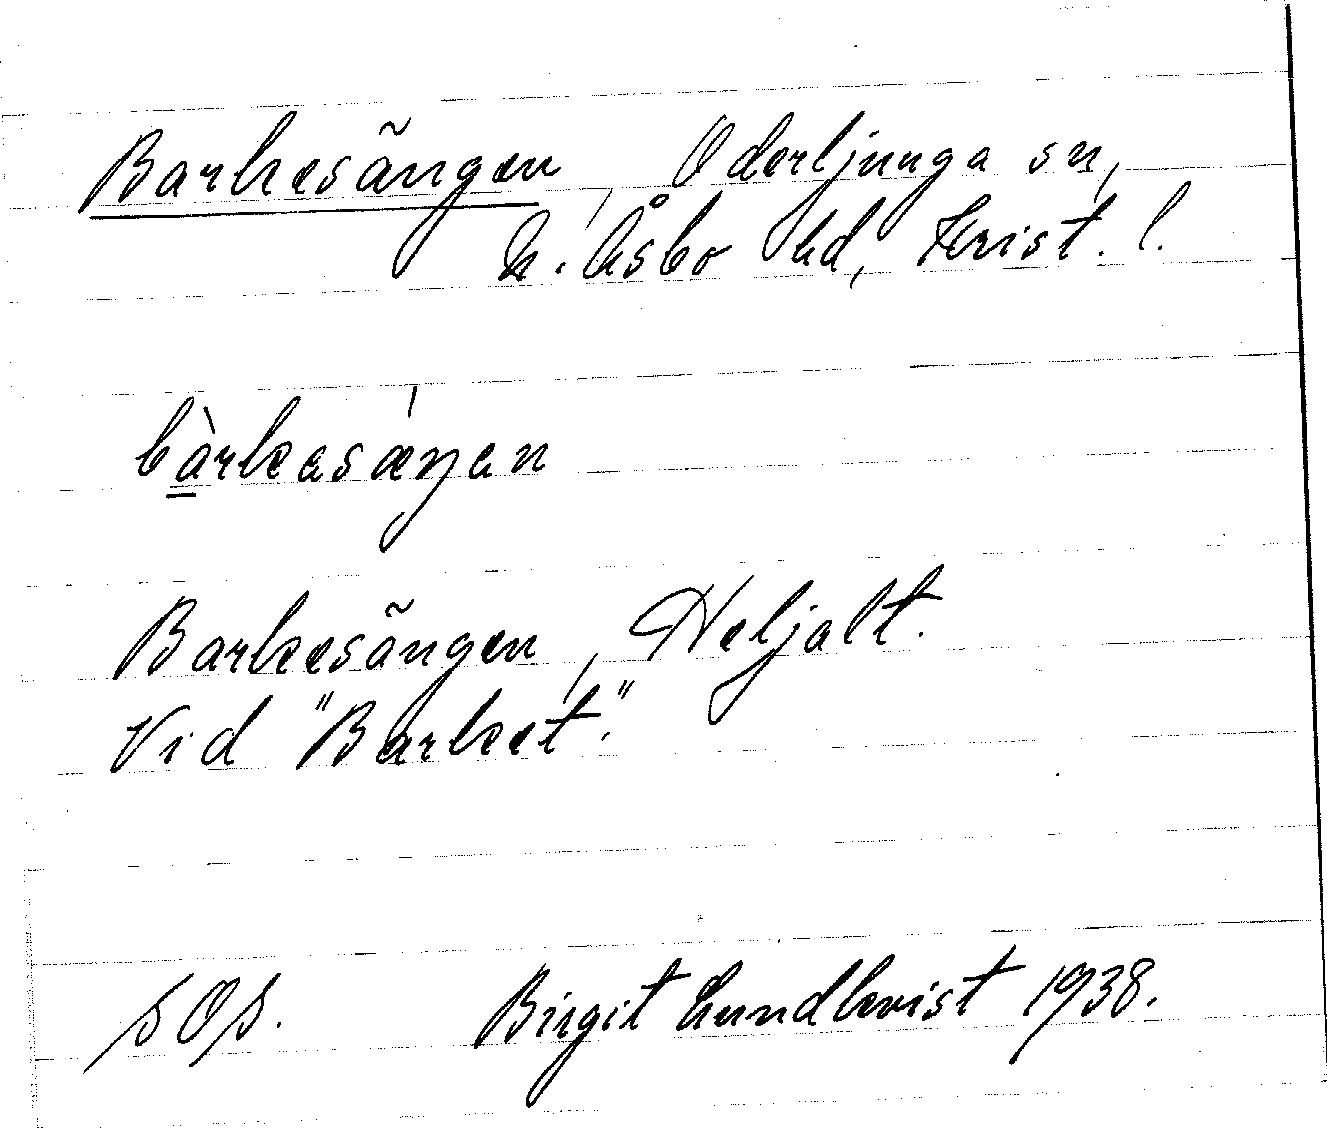 Barkesängen, Oderljunga sn,
N. Åsbo hd, Krist. l.
bàrkasæŋen
Barkesängen, Heljalt.
Vid "Barket."
SOS. Birgit Lundkvist 1938.